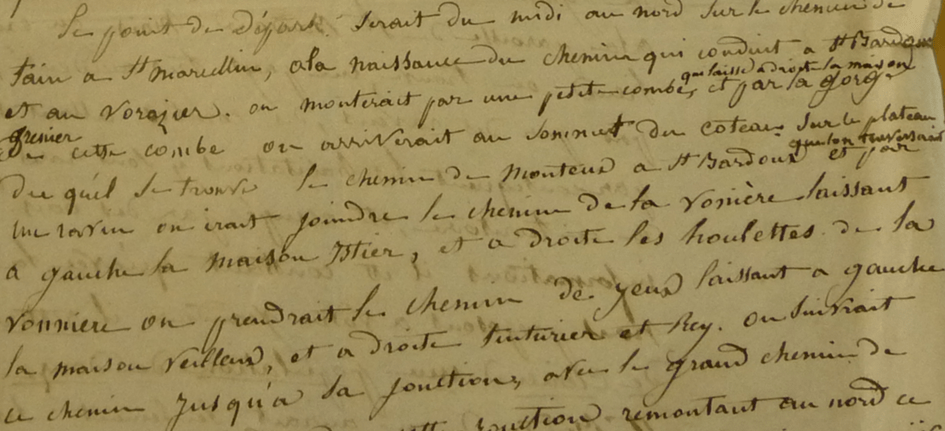 Le point de départ serait du midi au nord sur le chemin de
tain a St marcellin, a la naissance du chemin qui conduit a St Bardoux
et au vorasier. on monterait par une petite combe, et par la gorge
qui laisse a droite la maison
grenier
de cette combe on arriverait au sommet du coteau sur le plateau
que lon traverserait
du quel se trouve le chemin de monteux a St Bardoux et par
un ravin on irait joindre le chemin de la vonière laissant
a gauche la maison Istier, et a droite les houlettes de la
vonniere on prendrait le chemin de yeux laissant a gauche
la maison veilleux, et a droite tinturier et Rey. on suivrait
ce chemin jusqu'a la jonction, avec le grand chemin de
jonction remontant au nord ce